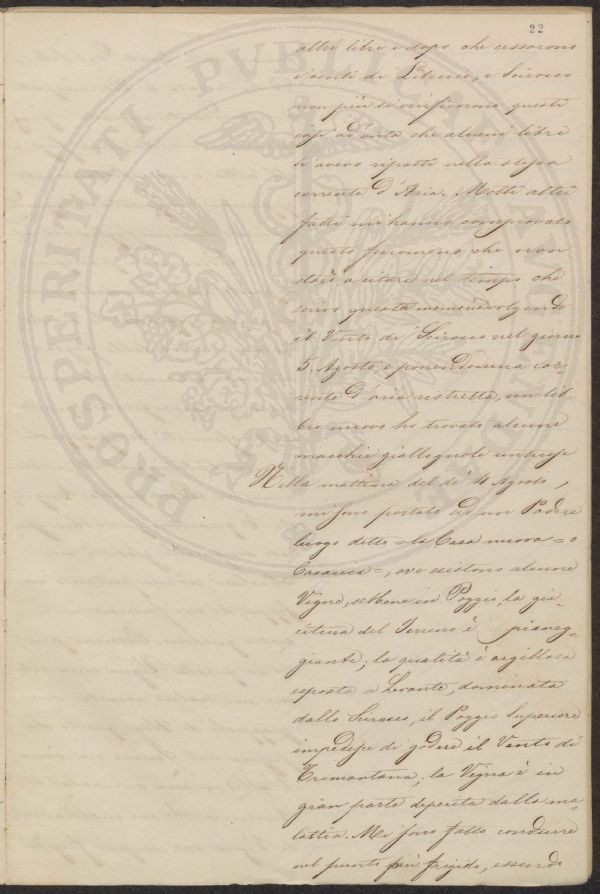 22
altri libri e dopo che cessorono
i venti di Libeccio, e Scirocco
non più si verificorono questi
casi ad onta che alcuni libri
si avevo riposti nella stessa
corrente d'Aria. Molti altri
fatti mi hanno comprovato
questo fenomeno che non
starò a citare nel tempo che
scrivo questa memoria volgendo
il Vento di Scirocco nel giorno
5. Agosto e ponendo una cor-
rente d'aria ristretta, un lib-
bro nuovo ho trovato alcune
macchie giallognole untuose
Nella mattina del dì 4 Agosto,
mi sono portato ad un Podere
luogo detto = la Casa nuova = o
Casaccia =, ove esistono alcune
Vigne, sebbene in Poggio, la gia-
citura del Terreno è pianeg-
giante; la qualità è argillosa
esposta a Levante, dominata
dallo Scirocco, il Poggio Superiore
impedisce di godere il Vento di
Tramontana; la Vigna è in
gran parte deperita dalla ma-
lattia. Mi sono fatto condurre
nel punto più frigido, essendo
PROSPERITATI PUBLICAE